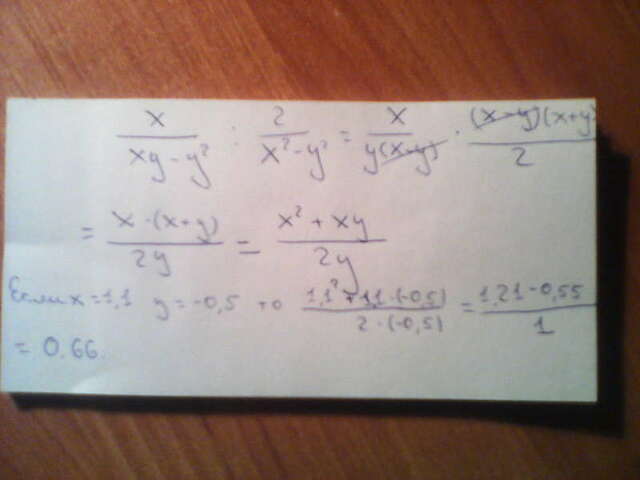 x/(xy - y²) : 2/(x² - y²) = x/(y(x-y)) · (x-y)(x+y)/2
= x·(x+y)/2y = (x² + xy)/2y
Если x = 1,1 y = -0,5 то (1,1² + 1,1·(-0,5))/(2·(-0,5)) = (1,21 - 0,55)/1
= 0.66.